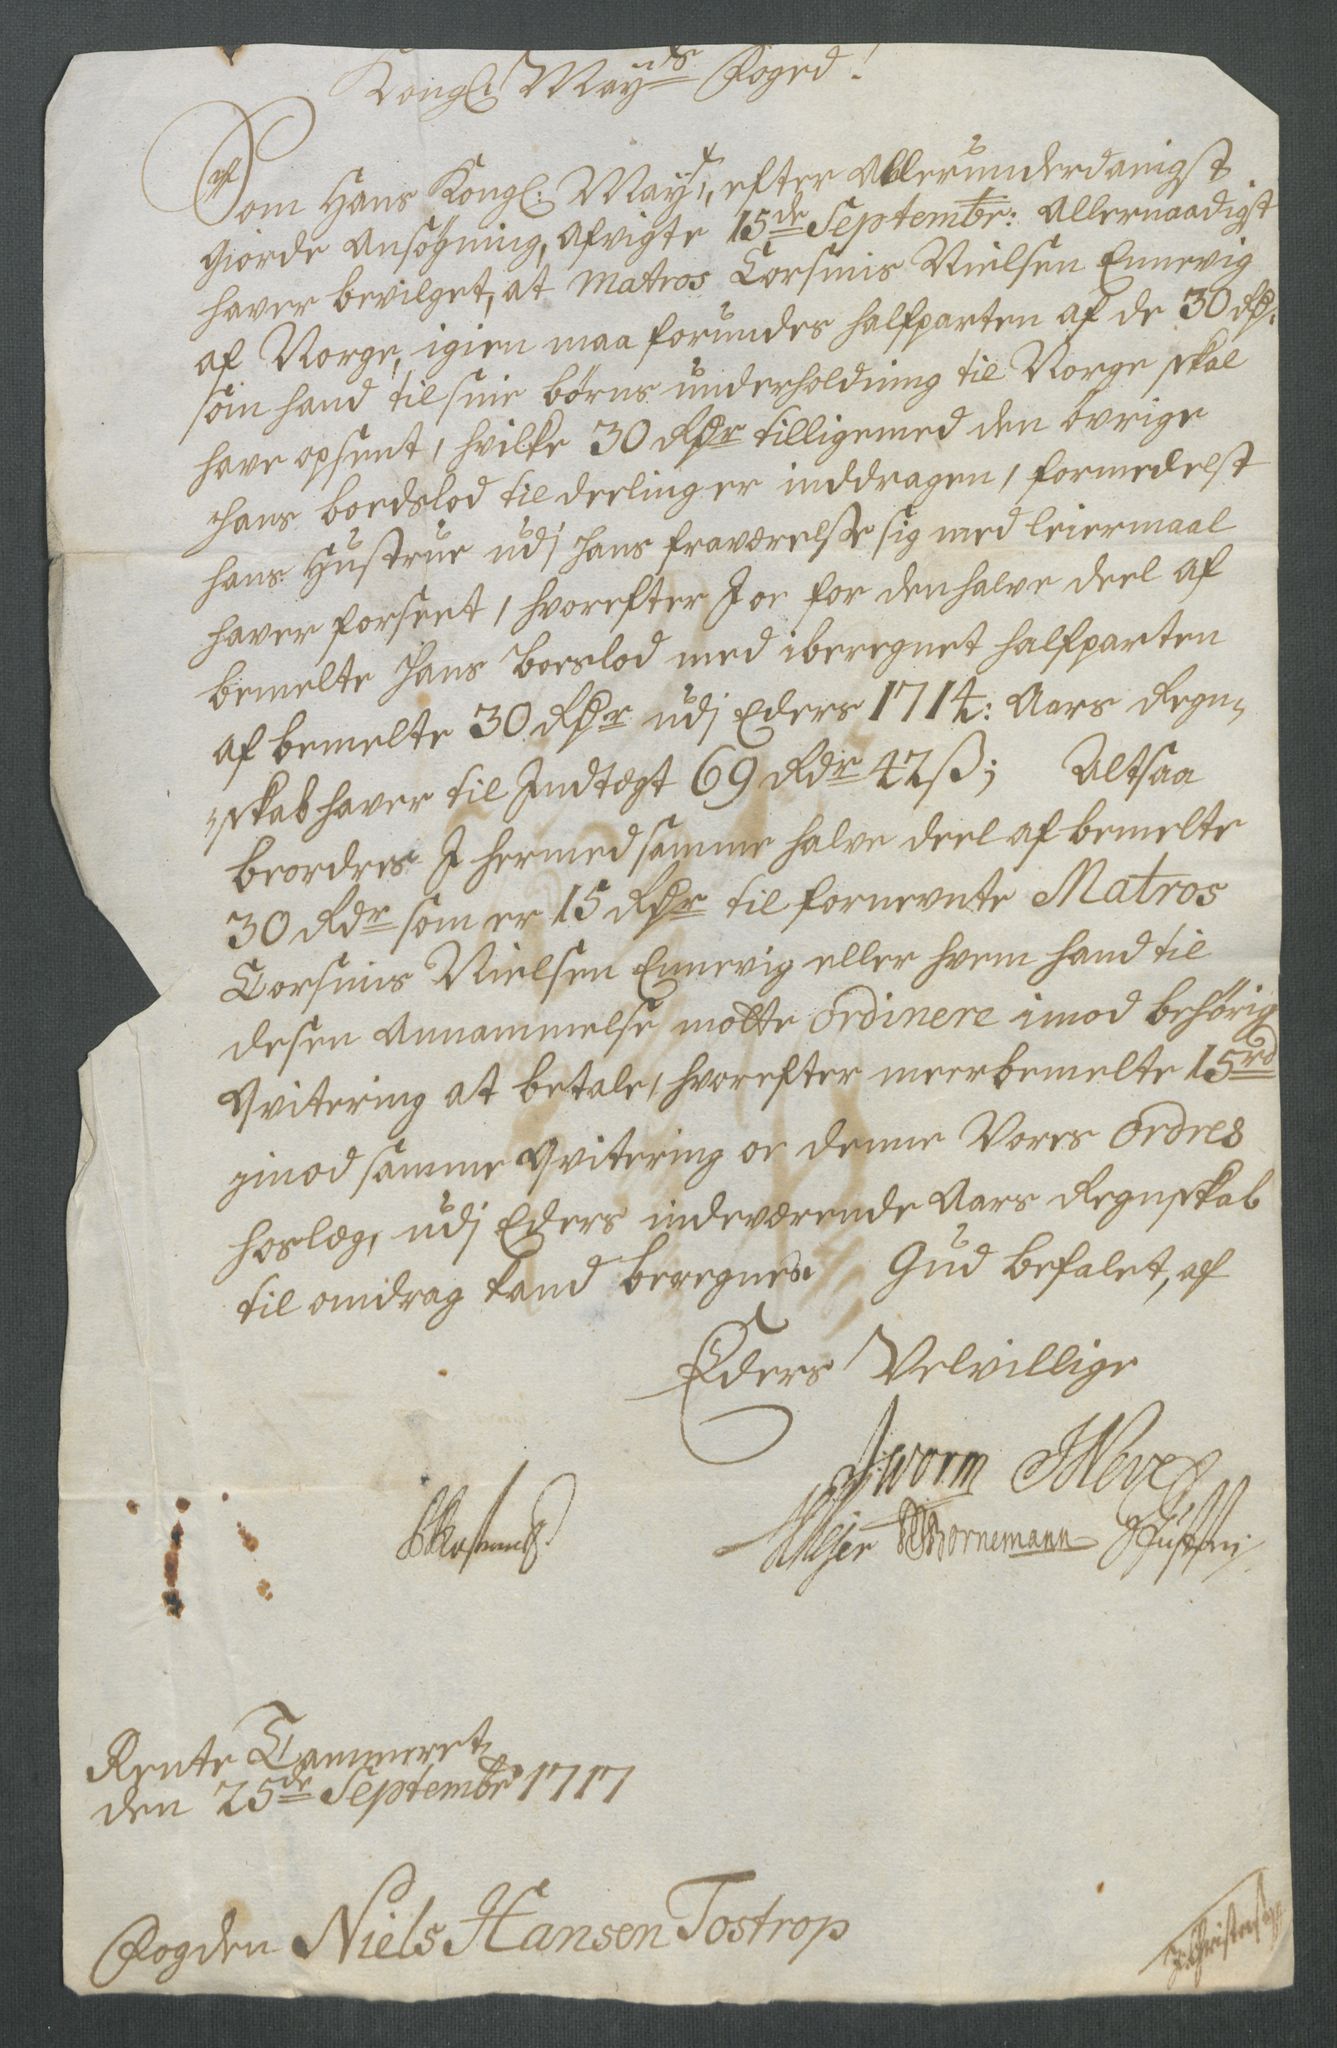 Kongl: Mayds Foged!
Som Hans Kongl: Mayt, efter Allerunderdanigst
giorde Ansögning, afvigte 15de Septembr: Allernaadigst
haver bevilget, at Matros Torsnis Nielsen Ennevig
af Norge, igien maa forundes halfparten af de 30 Rdr.
som hand til sine börns underholdning til Norge skal
have opsent, hvilke 30 Rdr tilligemed den övrige
hans boedslod til deeling er inddragen, formedelst
hans Hustrue udj hans fraværelse sig med leiermaal
haver forseet, hvorefter I oc for den halve deel af
bemelte hans boeslod med iberegnet halfparten
af bemelte 30 Rdr udj Eders 1714: Aars Regn-
skab haver til Indtegt 69 Rdr 42ß; Altsaa
beordres I hermed samme halve deel af bemelte
30 Rdr som er 15 Rdr til fornevnte Matros
Torsnis Nielsen Ennevig eller hvem hand til
desen Annammelse motte ordinere imod behörig
Qvitering at betale, hvorefter meerbemelte 15 rd
imod samme Qvitering oc denne Vores ordres
hoslæg, udj Eders indeværende Aars Regnskab
til omdrag kand beregnes. Gud befalet, af
Eders Velvillige
JWorm
Meyer Bornemann
Rente Cammeret,
den 25de Septembr 1717
Fogden Niels Hansen Tostrop